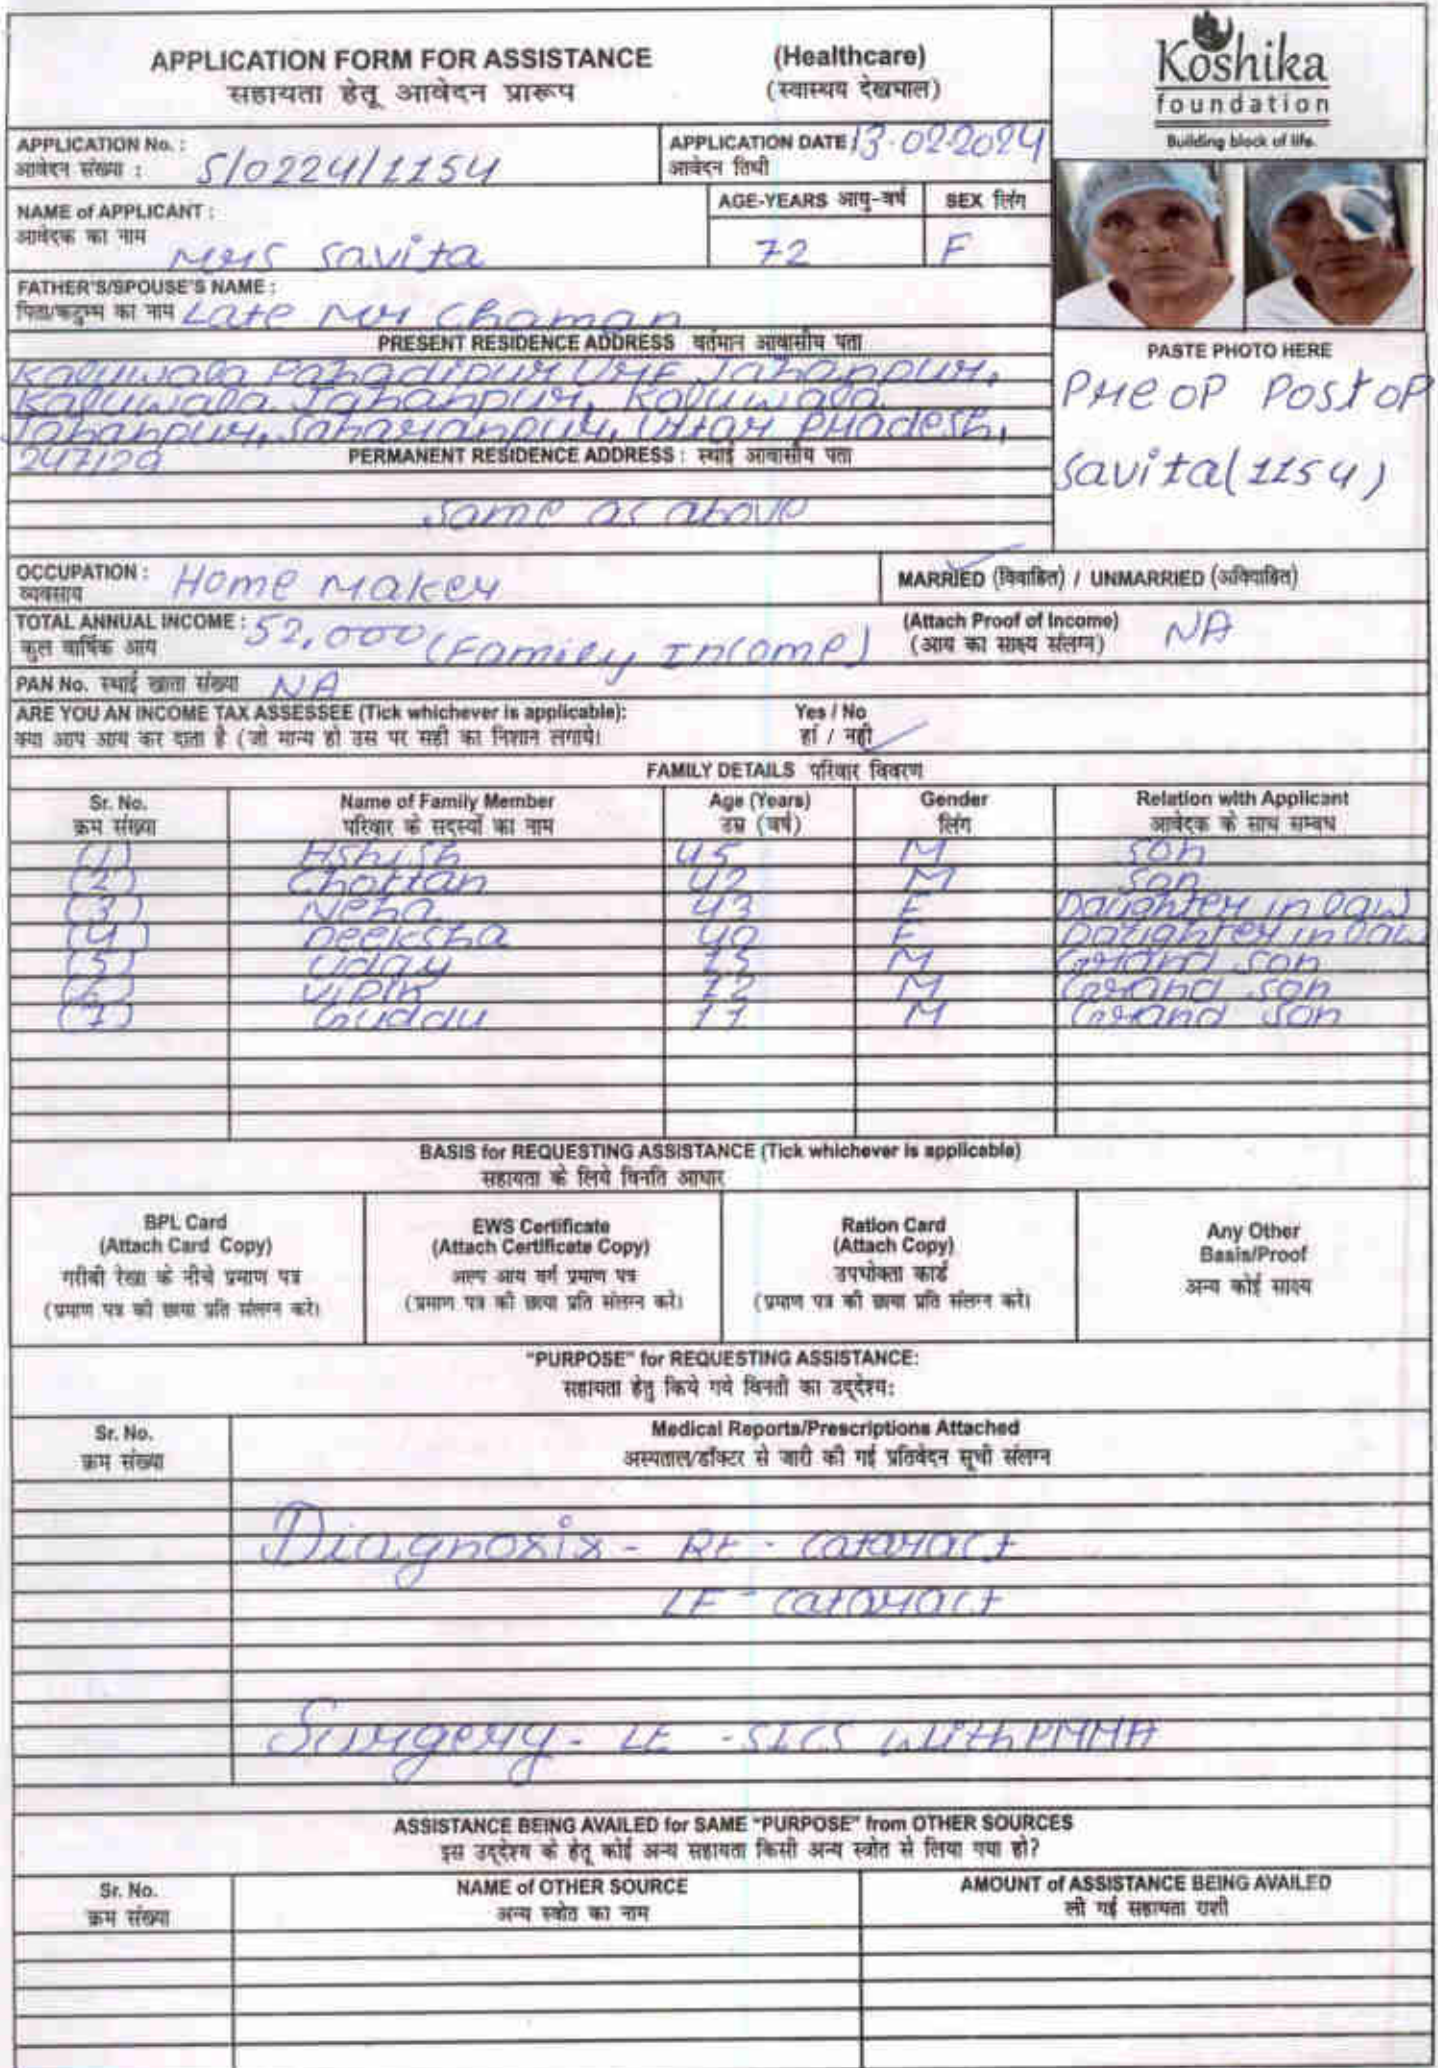 APPLICATION FORM FOR ASSISTANCE (Healthcare)
सहायता हेतू आवेदन प्रारूप (स्वास्थय देखभाल)
Koshika
foundation
Building block of life.
APPLICATION No. :
आवेदन संख्या : S/0224/1154
APPLICATION DATE 13-02-2024
आवेदन तिथी
NAME of APPLICANT :
आवेदक का नाम Mrs Savita
AGE-YEARS आयु-वर्ष
72
SEX लिंग
F
FATHER'S/SPOUSE'S NAME :
पिता/कटुम्ब का नाम Late Mr Chaman
PRESENT RESIDENCE ADDRESS वर्तमान आवासीय पता
Kaluwala Pahadipur Urf Jahanpur,
Kaluwala Jahanpur, Kaluwala
Jahanpur, Saharanpur, Uttar Pradesh,
247129
PERMANENT RESIDENCE ADDRESS : स्थाई आवासीय पता
Same as above
PASTE PHOTO HERE
Pre OP Post OP
Savita(1154)
OCCUPATION : Home Maker
व्यवसाय
MARRIED (विवाहित) / UNMARRIED (अविवाहित)
TOTAL ANNUAL INCOME : 52,000 (Family Income)
कुल वार्षिक आय
(Attach Proof of Income) NA
(आय का साक्ष्य संलग्न)
PAN No. स्थाई खाता संख्या NA
ARE YOU AN INCOME TAX ASSESSEE (Tick whichever is applicable): Yes / No
क्या आप आय कर दाता है (जो मान्य हो उस पर सही का निशान लगाये। हां / नही
FAMILY DETAILS परिवार विवरण
Sr. No. Name of Family Member Age (Years) Gender Relation with Applicant
क्रम संख्या परिवार के सदस्यों का नाम उम्र (वर्ष) लिंग आवेदक के साथ सम्बध
(1) Ashish 45 M Son
(2) Chottan 42 M Son
(3) Neha 43 F Daughter in law
(4) Deeksha 40 F Daughter in law
(5) Uday 15 M Grand son
(6) Vipin 12 M Grand son
(7) Guddu 11 M Grand son
BASIS for REQUESTING ASSISTANCE (Tick whichever is applicable)
सहायता के लिये विनति आधार
BPL Card
(Attach Card Copy)
गरीबी रेखा के नीचे प्रमाण पत्र
(प्रमाण पत्र की छाया प्रति संलग्न करे।
EWS Certificate
(Attach Certificate Copy)
अल्प आय वर्ग प्रमाण पत्र
(प्रमाण पत्र की छाया प्रति संलग्न करे।
Ration Card
(Attach Copy)
उपभोक्ता कार्ड
(प्रमाण पत्र की छाया प्रति संलग्न करे।
Any Other
Basis/Proof
अन्य कोई साक्ष्य
"PURPOSE" for REQUESTING ASSISTANCE:
सहायता हेतु किये गये विनती का उद्देश्य:
Sr. No. Medical Reports/Prescriptions Attached
क्रम संख्या अस्पताल/डॉक्टर से जारी की गई प्रतिवेदन सूची संलग्न
Diagnosis - RE - cataract
LE - cataract
Surgery - LE - SICS with PMMA
ASSISTANCE BEING AVAILED for SAME "PURPOSE" from OTHER SOURCES
इस उद्देश्य के हेतू कोई अन्य सहायता किसी अन्य स्त्रोत से लिया गया हो?
Sr. No. NAME of OTHER SOURCE AMOUNT of ASSISTANCE BEING AVAILED
क्रम संख्या अन्य स्त्रोत का नाम ली गई सहायता राशी